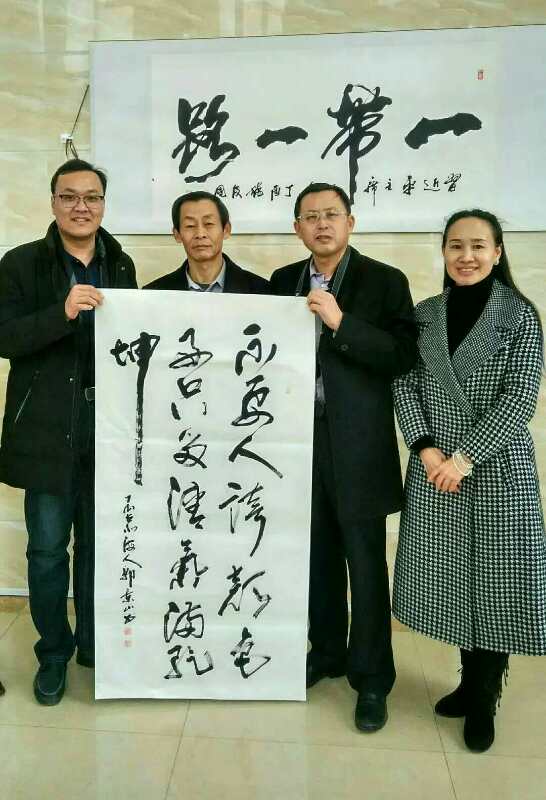 一帶一路
習近平主席
丁酉
不要人誇顏色
好只留清氣滿乾
坤